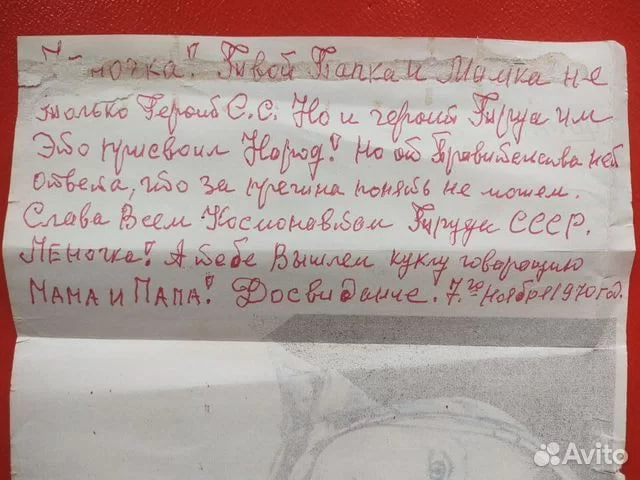 ночка! Твой Папка и Мамка не
только Герой С.С. Но и герои Труда им
Это присвоил Народ! Но от Правительства нет
ответа, что за причина понять не можем.
Слава Всем Космонавтам Труда СССР.
Леночка! А тебе Вышлем куклу говорящию
Мама и Папа! Досвидание. 7го Ноября 1970 год.
Avito